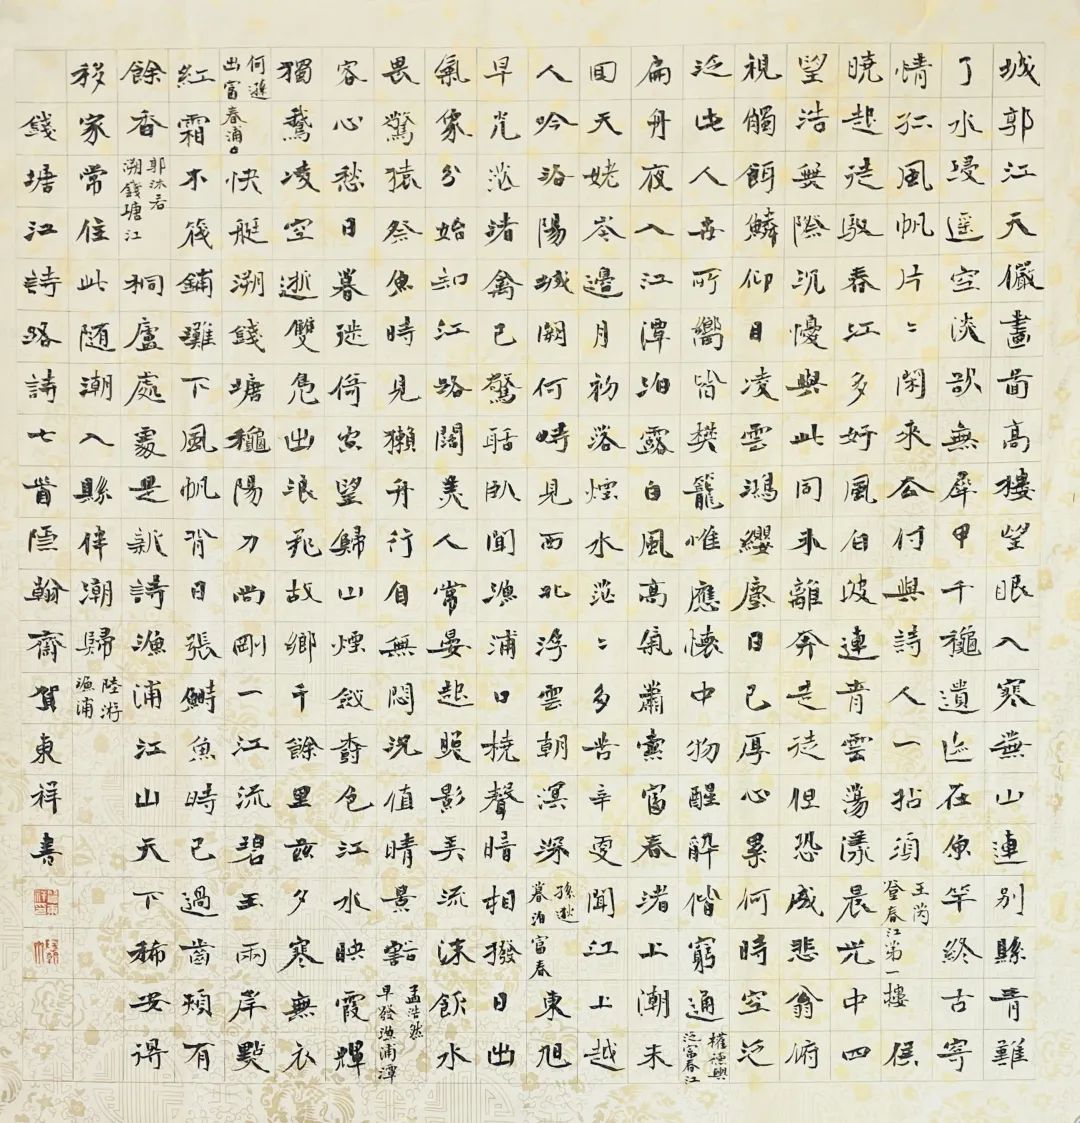 城郭江天儼畫啚高樓望眼入寒蕪山連別縣青難
了水浸遥空淡欲無犀甲千穐遺迹在魚竿終古寄
情孤風帆片〻閑來去何與詩人一拈須
王芮
登春江第一樓
侯
曉起徒馭春江多好風白波連青雲蕩漾晨光中四
望浩無際沉憂與此同未離奔走徒但恐成悲翁俯
視觸餌鱗仰目凌雲鴻纓塵日已厚心累何時空泛
泛此人世所嚮皆樊籠惟應懷中物醒醉偕窮通
權德輿
泛富春江
扁舟夜入江潭泊露白風高氣蕭索富春渚上潮未
回天姥岑邊月初落煙水茫〻多苦辛更聞江上越
人吟洛陽城闕何時見西北浮雲朝溟深
孫逖
暮泊富春
東旭
早光茫渚禽已驚聒臥聞漁浦口橈聲暗相撥日出
氣象分始知江路闊美人常晏起照影弄流沫飲水
畏驚猿祭魚時見獺舟行自無悶況值晴景豁
孟浩然
早發漁浦潭
客心愁日暮徙倚空望歸山煙斂樹色江水映霞輝
獨鶩凌空逝雙鳧出浪飛故鄉千餘里茲夕寒無衣
何遜
出富春浦口
快艇溯錢塘穐陽刀尚剛一江流碧玉兩岸點
紅霜不筏鋪灘下風帆背日張鰣魚時已過齒頰有
餘香
郭沐若
溯錢塘江
桐廬處處是新詩漁浦江山天下稀安得
移家常住此随潮入縣伴潮歸
陸游
漁浦
錢塘江詩路詩七首隱翰齋賀東祥書